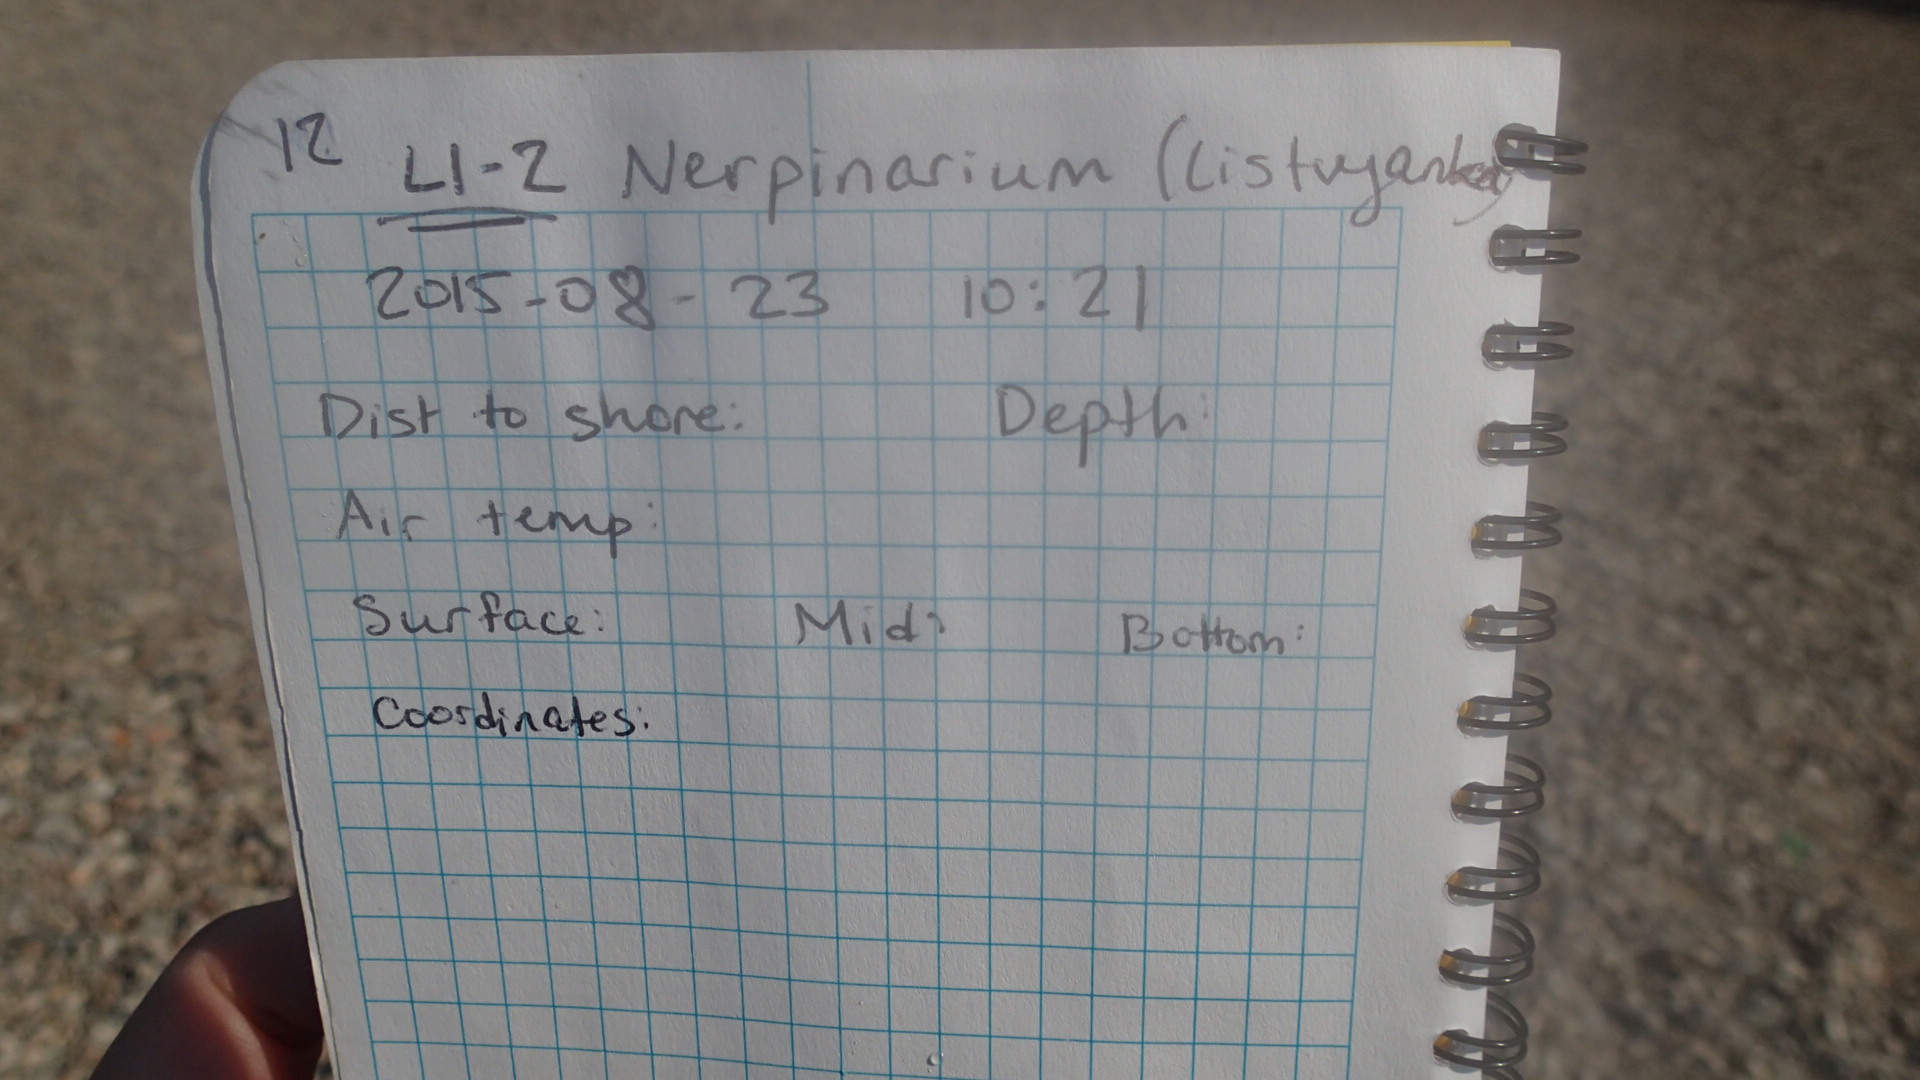 12 LI-2 Nerpinarium (Listvyanka)
2015-08-23 10:21
Dist to shore: Depth:
Air temp:
Surface: Mid: Bottom:
Coordinates: